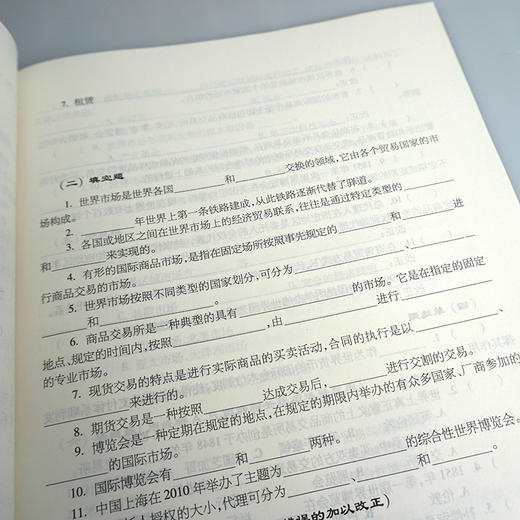 7. 租赁
(二) 填空题
1. 世界市场是世界各国________和________交换的领域,它由各个贸易国家的市
场构成。
2. ________年世界上第一条铁路建成,从此铁路逐渐代替了驿道。
3. 各国或地区之间在世界市场上的经济贸易联系,往往是通过特定类型的________
和________来实现的。
4. 有形的国际商品市场,是指在固定场所按照事先规定的________和________进
行商品交易的市场。
5. 世界市场按照不同类型的国家划分,可分为________、________、
________和________。
6. 商品交易所是一种典型的具有________的市场。它是在指定的固定
地点、规定的时间内,按照________,由________进行________
的专业市场。
7. 现货交易的特点是进行实际商品的买卖活动,合同的执行是以________
________来进行的。
8. 期货交易是一种按照________达成交易后,________进行交割的交易。
9. 博览会是一种定期在规定的地点,在规定的期限内举办的有众多国家、厂商参加的
________的国际市场。
10. 国际博览会有________和________两种。
11. 中国上海在2010年举办了主题为________的综合性世界博览会。
授权的大小,代理可分为________、________和________。
的加以改正)